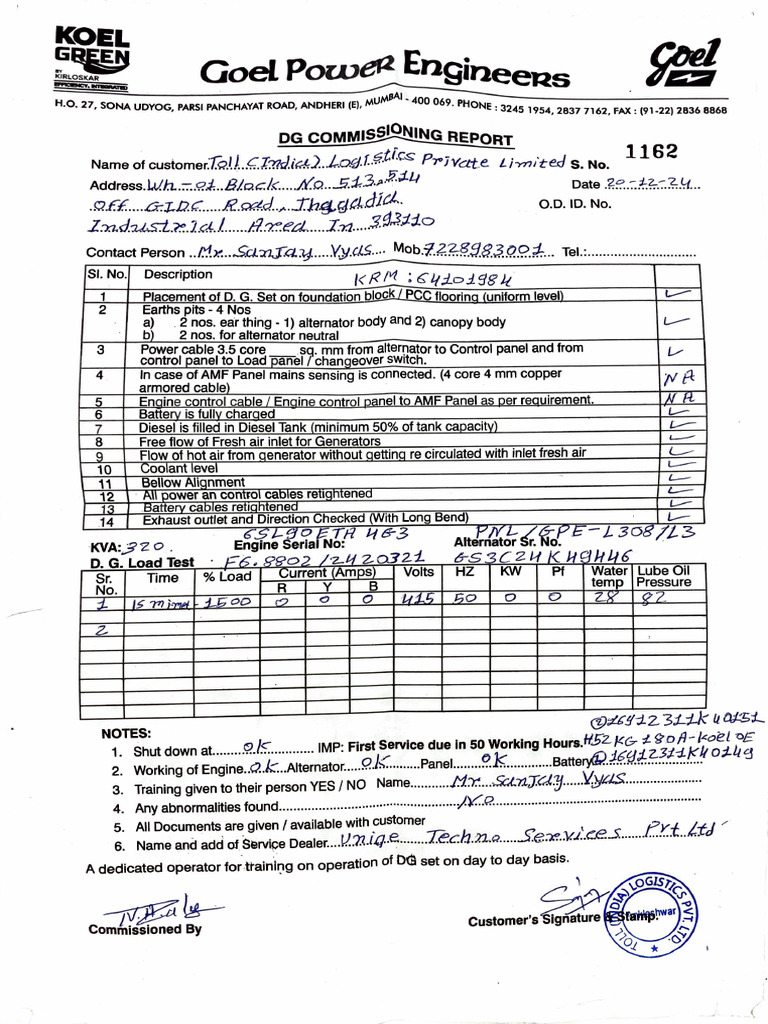 KOEL
GREEN
BY
KIRLOSKAR
EFFICIENCY. INTEGRATED
Goel Power Engineers
Goel
H.O. 27, SONA UDYOG, PARSI PANCHAYAT ROAD, ANDHERI (E), MUMBAI - 400 069. PHONE : 3245 1954, 2837 7162, FAX : (91-22) 2836 8868
DG COMMISSIONING REPORT
Name of customer Toll (India) Logistics Private Limited S. No. 1162
Address. Wh-01 Block No 513,514 Date 20-12-24
Off GIDC Road, Thagadia O.D. ID. No.
Industrial Area In 393110
Contact Person Mr Sanjay Vyas Mob. 7228983001 Tel.:
Sl. No. Description KRM : 64101984
1 Placement of D. G. Set on foundation block / PCC flooring (uniform level) ✓
2 Earths pits - 4 Nos
a) 2 nos. ear thing - 1) alternator body and 2) canopy body ✓
b) 2 nos. for alternator neutral
3 Power cable 3.5 core ____ sq. mm from alternator to Control panel and from
control panel to Load panel / changeover switch. ✓
4 In case of AMF Panel mains sensing is connected. (4 core 4 mm copper
armored cable) NA
5 Engine control cable / Engine control panel to AMF Panel as per requirement. NA
6 Battery is fully charged ✓
7 Diesel is filled in Diesel Tank (minimum 50% of tank capacity) ✓
8 Free flow of Fresh air inlet for Generators ✓
9 Flow of hot air from generator without getting re circulated with inlet fresh air ✓
10 Coolant level ✓
11 Bellow Alignment ✓
12 All power an control cables retightened ✓
13 Battery cables retightened ✓
14 Exhaust outlet and Direction Checked (With Long Bend) ✓
6SL90ETA 4G3 PNL/GPE-L308/13
KVA: 320. Engine Serial No: Alternator Sr. No.
D. G. Load Test FG.8802/2420321 GS3C24K49446
Sr. No. Time % Load Current (Amps) R Y B Volts HZ KW Pf Water temp Lube Oil Pressure
1 15 mind - 1500 0 0 0 415 50 0 0 28 82
2
NOTES:
② 16912311K40151
1. Shut down at OK IMP: First Service due in 50 Working Hours. H52KG180A-Koel OE
2. Working of Engine OK Alternator OK Panel OK Battery ① 16912311K40149
3. Training given to their person YES / NO Name Mr Sanjay Vyas
4. Any abnormalities found NO
5. All Documents are given / available with customer
6. Name and add of Service Dealer. Uniqe Techno Services Pvt Ltd
A dedicated operator for training on operation of DG set on day to day basis.
Commissioned By
Customer's Signature & Stamp.
TOLL (INDIA) LOGISTICS PVT. LTD.